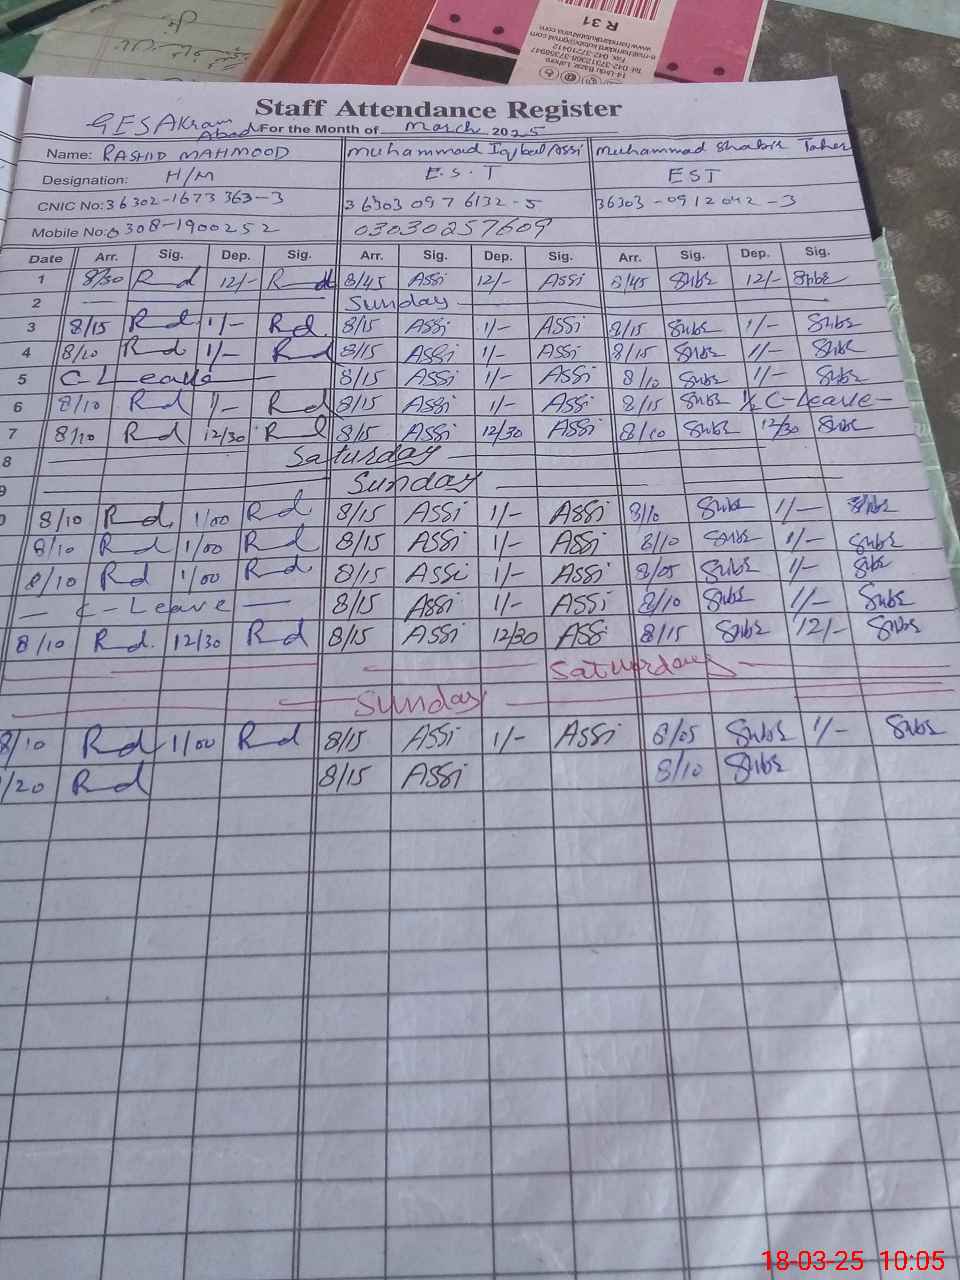 R 31
14-Urdu Bazar, Lahore
Tel: 042-37312368-37358947
Fax: 042-37210412
Staff Attendance Register
GESAKram Abad For the Month of March 2025
Name: RASHID MAHMOOD muhammad Iqbal Assi muhammad Shabir Taher
Designation: H/M E.S.T EST
CNIC No: 36302-1673363-3 36303 0976132-5 36303-0912042-3
Mobile No: 0308-1900252 03030257609
Date Arr. Sig. Dep. Sig. Arr. Sig. Dep. Sig. Arr. Sig. Dep. Sig.
1 8/30 Rd 12/- Rd 8/45 ASSi 12/- ASSi 8/45 Subs 12/- Subs
2 Sunday
3 8/15 Rd 1/- Rd 8/15 ASSi 1/- ASSi 8/15 Subs 1/- Subs
4 8/10 Rd 1/- Rd 8/15 ASSi 1/- ASSi 8/15 Subs 1/- Subs
5 C-Leave 8/15 ASSi 1/- ASSi 8/10 Subs 1/- Subs
6 8/10 Rd 1/- Rd 8/15 ASSi 1/- ASSi 8/15 Subs 1/2 C-Leave-
7 8/10 Rd 12/30 Rd 8/15 ASSi 12/30 ASSi 8/10 Subs 12/30 Subs
8 Saturday
9 Sunday
0 8/10 Rd 1/00 Rd 8/15 ASSi 1/- ASSi 8/10 Subs 1/- Subs
8/10 Rd 1/00 Rd 8/15 ASSi 1/- ASSi 8/10 Subs 1/- Subs
8/10 Rd 1/00 Rd 8/15 ASSi 1/- ASSi 8/05 Subs 1/- Subs
- C-Leave - 8/15 ASSi 1/- ASSi 8/10 Subs 1/- Subs
8/10 Rd 12/30 Rd 8/15 ASSi 12/30 ASSi 8/15 Subs 12/- Subs
Saturday
Sunday
8/10 Rd 1/00 Rd 8/15 ASSi 1/- ASSi 8/05 Subs 1/- Subs
/20 Rd 8/15 ASSi 8/10 Subs
18-03-25 10:05